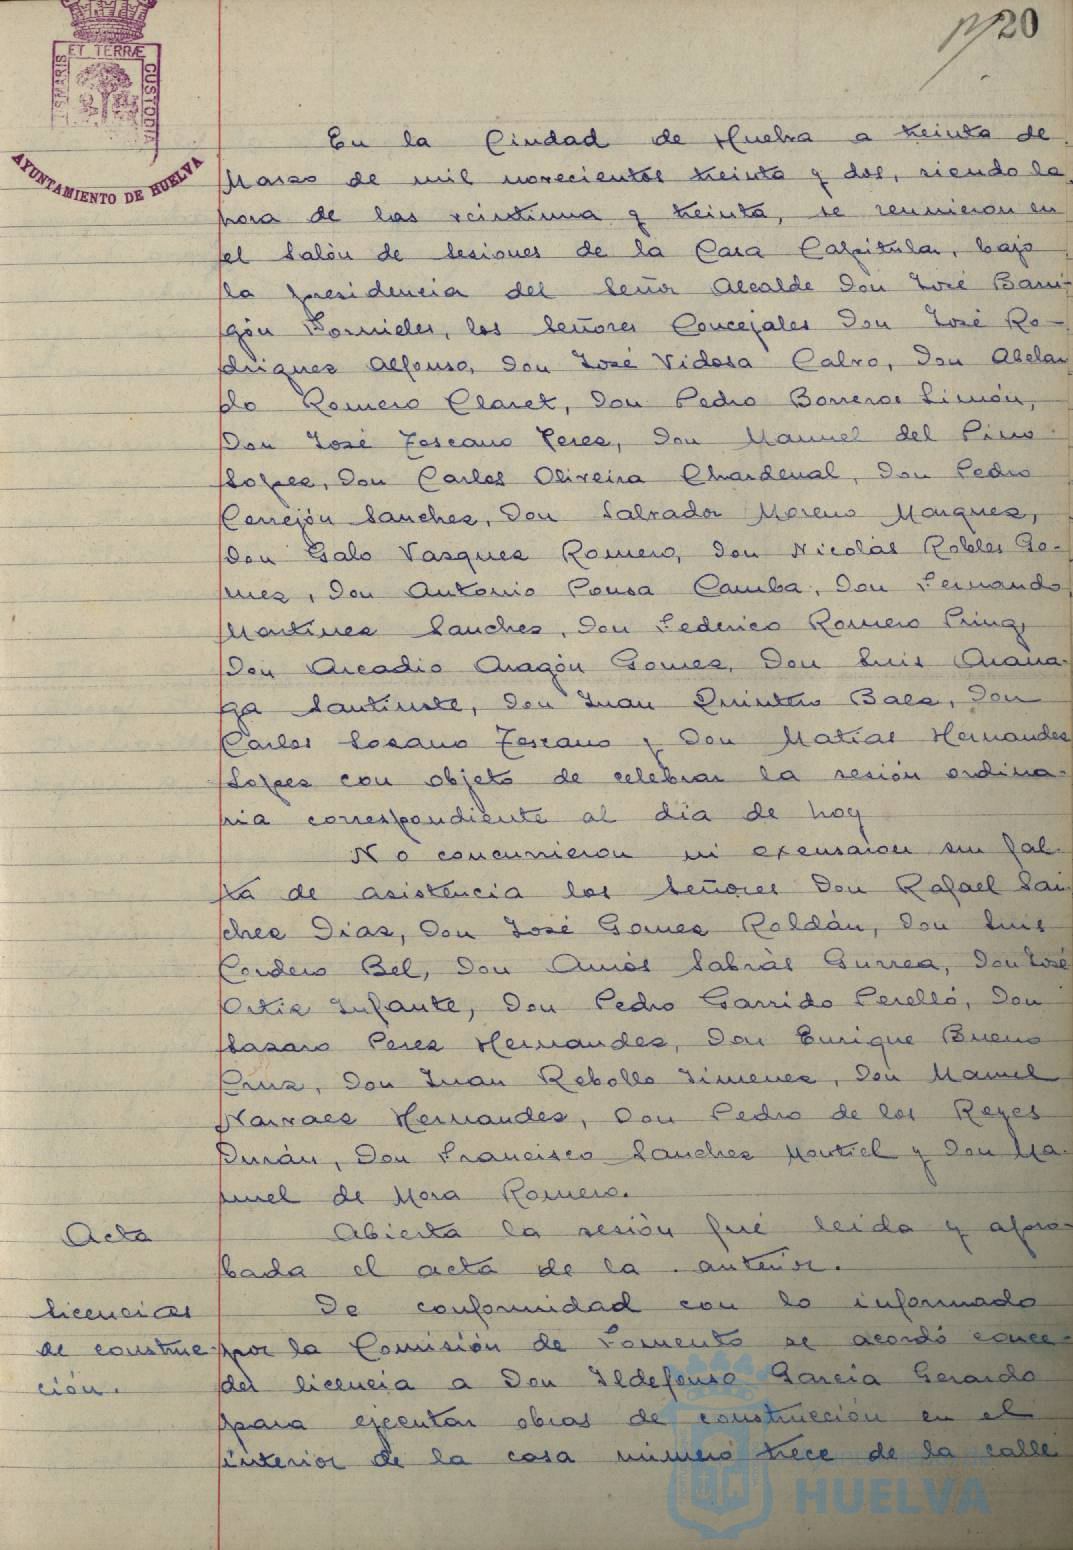 20
ET TERRÆ
S MARIS
CUSTODIA
AYUNTAMIENTO DE HUELVA
En la Ciudad de Huelva a treinta de
Marzo de mil novecientos treinta y dos, siendo la
hora de las veintiuna y treinta, se reunieron en
el Salón de Sesiones de la Casa Capitular, bajo
la presidencia del Señor Alcalde Don José Barri-
gón Fornieles, los Señores Concejales Don José Ro-
driguez Alfonso, Don José Vidosa Calvo, Don Abelar
do Romero Claret, Don Pedro Borrero Limón,
Don José Toscano Perez, Don Manuel del Pino
Lopez, Don Carlos Oliveira Chardenal, Don Pedro
Cerrejón Sanchez, Don Salvador Moreno Marquez,
Don Galo Vazquez Romero, Don Nicolás Robles Go-
mez, Don Antonio Pousa Camba, Don Fernando
Martinez Sanchez, Don Federico Romero Pring,
Don Arcadio Aragón Gomez, Don Luis Arana-
ga Santiuste, Don Juan Quintero Baez, Don
Carlos Lozano Toscano y Don Matías Hernandez
Lopez con objeto de celebrar la sesión ordina-
ria correspondiente al día de hoy
No concurrieron ni excusaron su fal-
ta de asistencia los Señores Don Rafael San
chez Diaz, Don José Gomez Roldán, Don Luis
Cordero Bel, Don Amós Sabrás Gurrea, Don José
Ortiz Infante, Don Pedro Garrido Perelló, Don
Lazaro Perez Hernandez, Don Enrique Bueno
Cruz, Don Juan Rebollo Jimenez, Don Manuel
Narvaez Hernandez, Don Pedro de los Reyes
Durán, Don Francisco Sanchez Montiel y Don Ma-
nuel de Mora Romero.
Acta
Abierta la sesión fué leida y apro-
bada el acta de la anterior.
Licencias
de construc-
ción.
De conformidad con lo informado
por la Comisión de Fomento se acordó conce-
der licencia a Don Ildefonso García Gerardo
para ejecutar obras de construcción en el
interior de la casa número trece de la calle
HUELVA